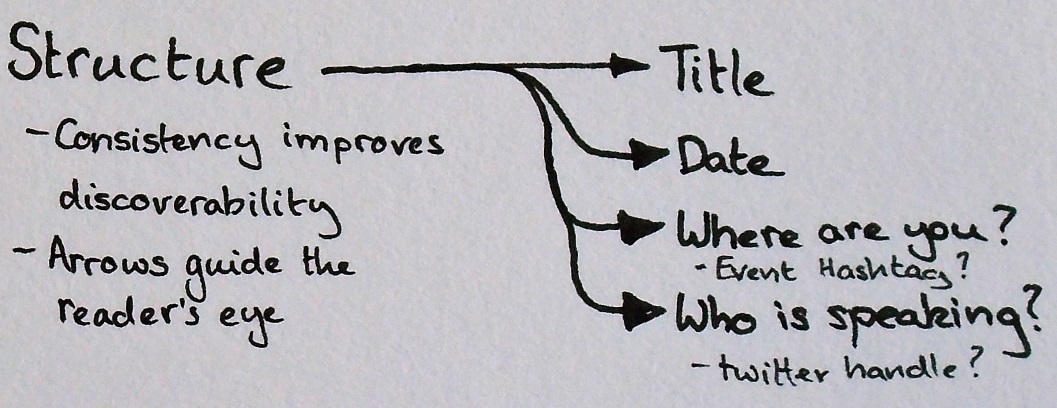 Structure
- Consistency improves
discoverability
- Arrows guide the
reader's eye
Title
Date
Where are you?
- Event Hashtag?
Who is speaking?
- twitter handle?